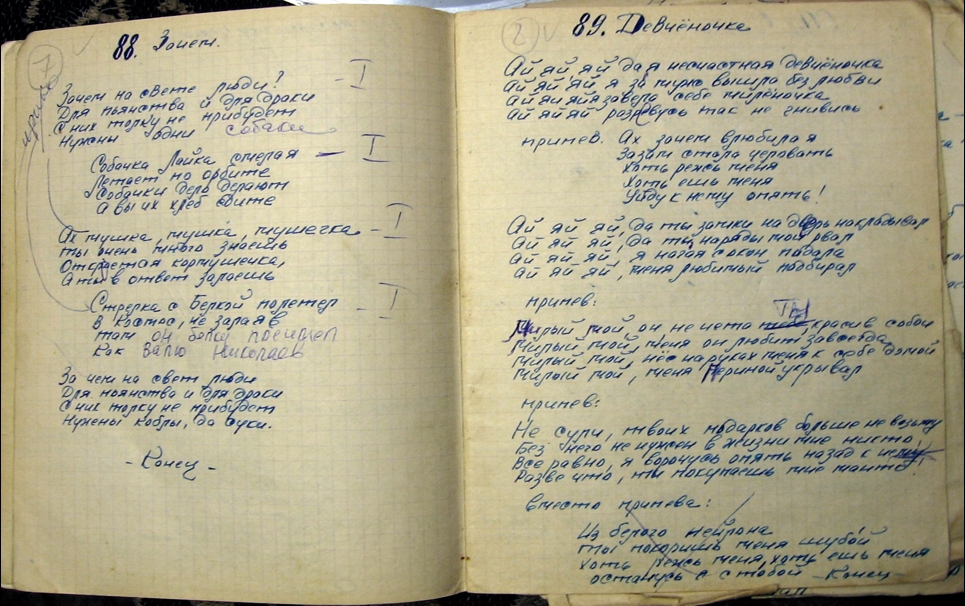 88. Зачем.
Зачем на свете люди? - I
Для пьянства и для драки
С них толку не прибудет
Нужны одни собаки
Собачка Лайка смелая - I
Летает по орбите
Собачки дело делают
А вы их хлеб едите
Ах мушка, мушка, мушечка - I
Ты очень много знаешь
Откроется кормушечка,
А ты в ответ залаешь
Стрелка с Белкой полетел - I
В Космос, не залаяв
там он Белку посещал
Как Валю Николаев
За чем на свет люди
Для пьянства и для драки
С них толку не прибудет
Нужены кобли, да суки.
- Конец -
2
89. Девчёночка
Ай яй, яй, да я несчастная девчёночка
Ай яй яй, я за муж вышла без любви
Ай яй яй я завела себе милёночка
Ай яй яй так не
припев. Ах зачем влюбилая
Зачем стала
Хоть режь меня
Хоть ешь меня
Уйду к нему опять!
Ай яй яй, да ты замки на дверь накладывал
Ай яй яй, да ты наряды мои рвал
Ай яй яй, я нагая с окон падала
Ай яй яй, меня любимый подбирал
припев:
Милый мой, он не чета тебе, красив собой
Милый мой, меня он любит завсегда
Милый мой, нёс на руках меня к себе домой
Милый мой, меня периной укрывал
припев:
Не сули, твоих подарков больше не возьму
Без него не нужен в жизни мне никто,
Все равно, я ворочусь опять назад к нему,
Разве что, ты покупаешь мне манто
вместо припева:
Из белого нейрона
ты покоришь меня шубой
Хоть режь меня, хоть ешь меня
останусь я с тобой - Конец -